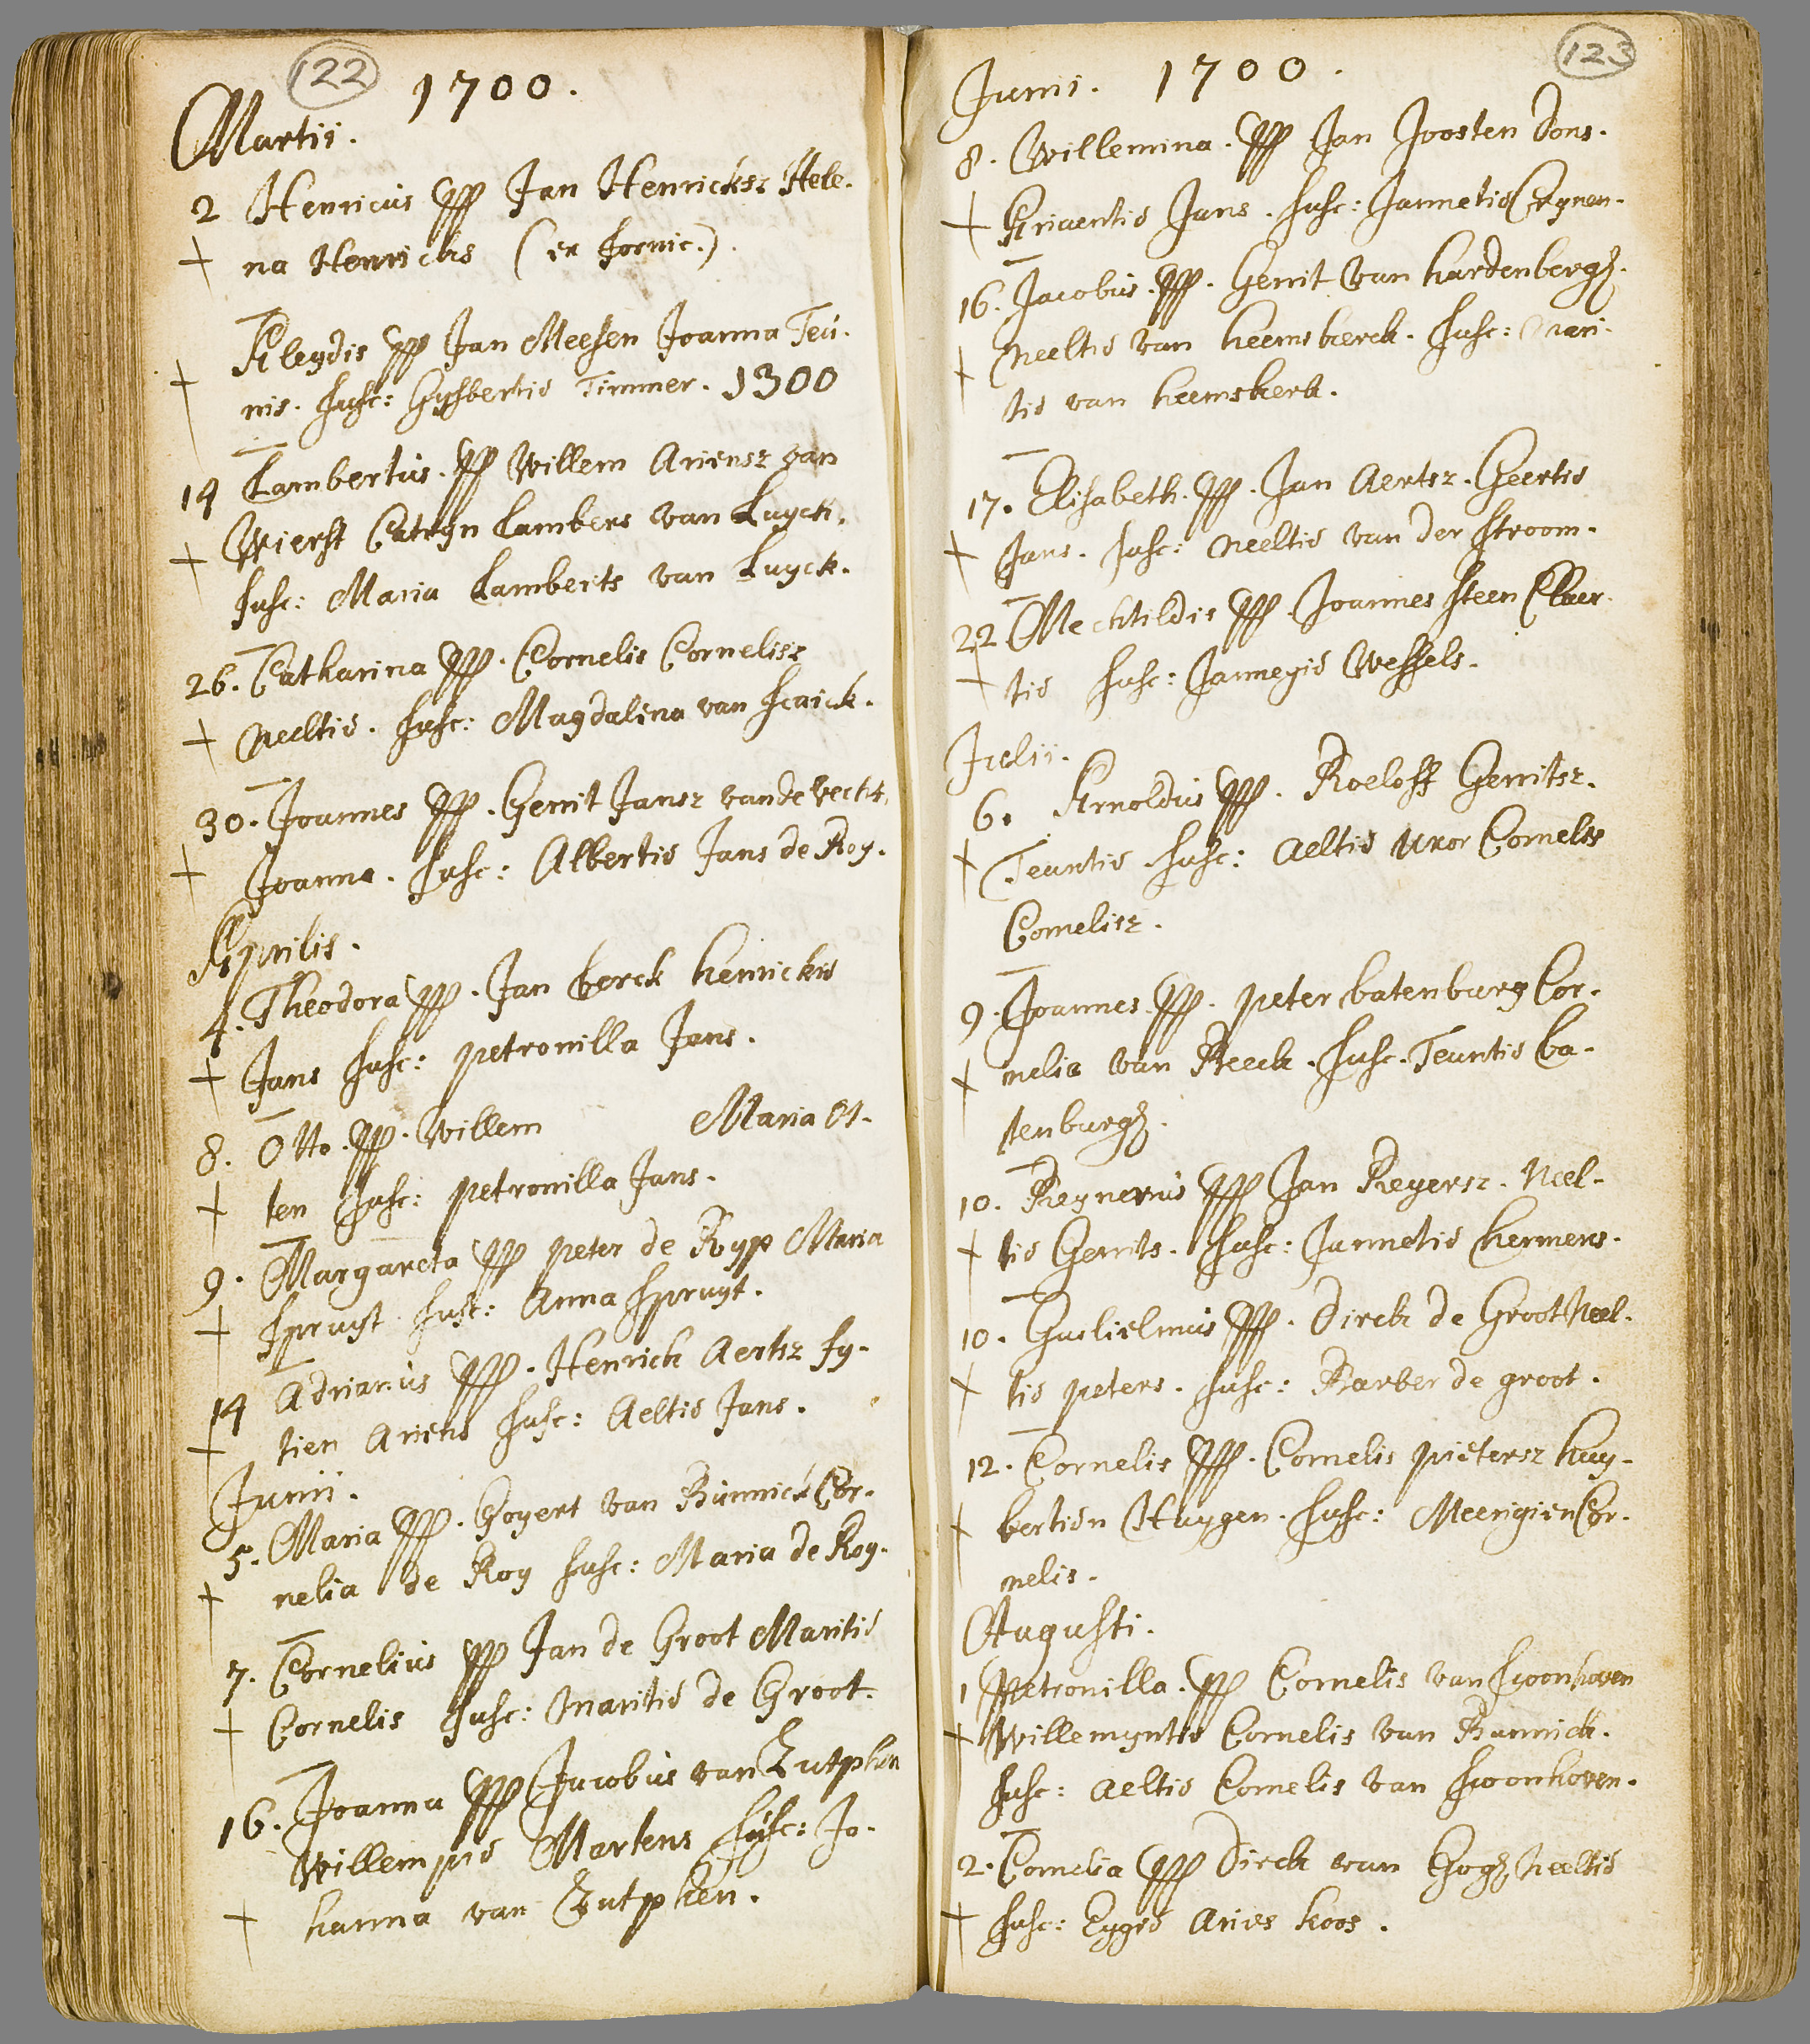 122
1700.
Martii.
2 Henricus ppp Jan Henricksz Hele-
+ na Henricks (ex fornic.).
Aleydis ppp Jan Meesen Joanna Teu-
+ nis. susc: Gysbertie Timmer. 1300
14 Lambertus. ppp Willem Ariensz van
+ Wierst Catryn Lambers van Luyck.
susc: Maria Lamberts van Luyck.
26. Catharina ppp. Cornelis Cornelisz
+ Neeltie. susc: Magdalena van Scaick.
30. Joannes ppp. Gerrit Jansz vande vecht,
+ Joanna. susc: Albertie Jans de Roy.
Aprilis.
4. Theodora ppp. Jan berck henrickie
+ Jans susc: petronilla Jans.
8. Otto. ppp. Willem Maria Ot-
+ ten susc: petronilla Jans.
9. Margareta ppp peter de Ryp Maria
+ Spruyt susc: Anna Spruyt.
14 Adrianus ppp. Henrick Aertsz fy-
+ tien Ariens susc: Aeltie Jans.
Junii.
5. Maria ppp. Goyert van Bunnick Cor-
+ nelia de Roy susc: Maria de Roy.
7. Cornelius ppp Jan de Groot Maritie
+ Cornelis susc: Maritie de Groot.
16. Joanna ppp Jacobus van Zutphen
Willempie Martens susc: Jo-
+ hanna van Zutphen.
123
Junii. 1700.
8. Willemina. ppp Jan Joosten Dons.
+ Ariaentie Jans. susc: Jannetie
16. Jacobus. ppp. Gerrit van hardenbergh.
+ Neeltie van heemskerck. susc: Mari-
tie van heemskerk.
17. Elisabeth. ppp. Jan Aertsz. Geertie
+ Jans. susc: Neeltie van der stroom.
22 Mechtildis ppp. Joannes steen Claer-
+ tie susc: Jannegie Wessels.
Julii.
6. Arnoldus ppp. Roeloff Gerritsz.
+ Teuntie susc: Aeltie uxor Cornelis
Cornelisz.
9. Joannes. ppp. peter batenburg Cor-
+ nelia van Reeck. susc. Teuntie ba-
tenburgh.
10. Reynerus ppp Jan Reyersz. Neel-
+ tie Gerrits. susc: Jannetie hermens.
10. Guilielmus ppp. Dirck de Groot Neel-
+ tie peters. susc: Barber de groot.
12. Cornelis ppp. Cornelis pietersz huy-
+ bertien Huygen. susc: Meerigien Cor-
nelis.
Augusti.
1 Petronilla. ppp Cornelis van scoonhoven
+ Willemyntie Cornelis van Bunnick.
susc: Aeltie Cornelis van scoonhoven.
2. Cornelia ppp Dirck van Gogh Neeltie
+ susc: Eygie Aries koos.